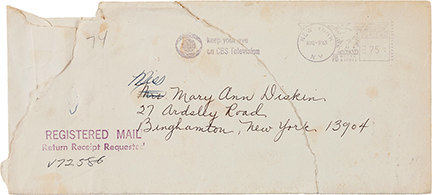 74
keep your eye
on CBS Television
N.Y.
75
Miss
Mrs Mary Ann Diskin
27 Ardsley Road
Binghamton, New York 13904
REGISTERED MAIL
Return Receipt Requested
V72586